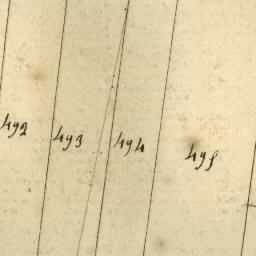 492
493
494
495